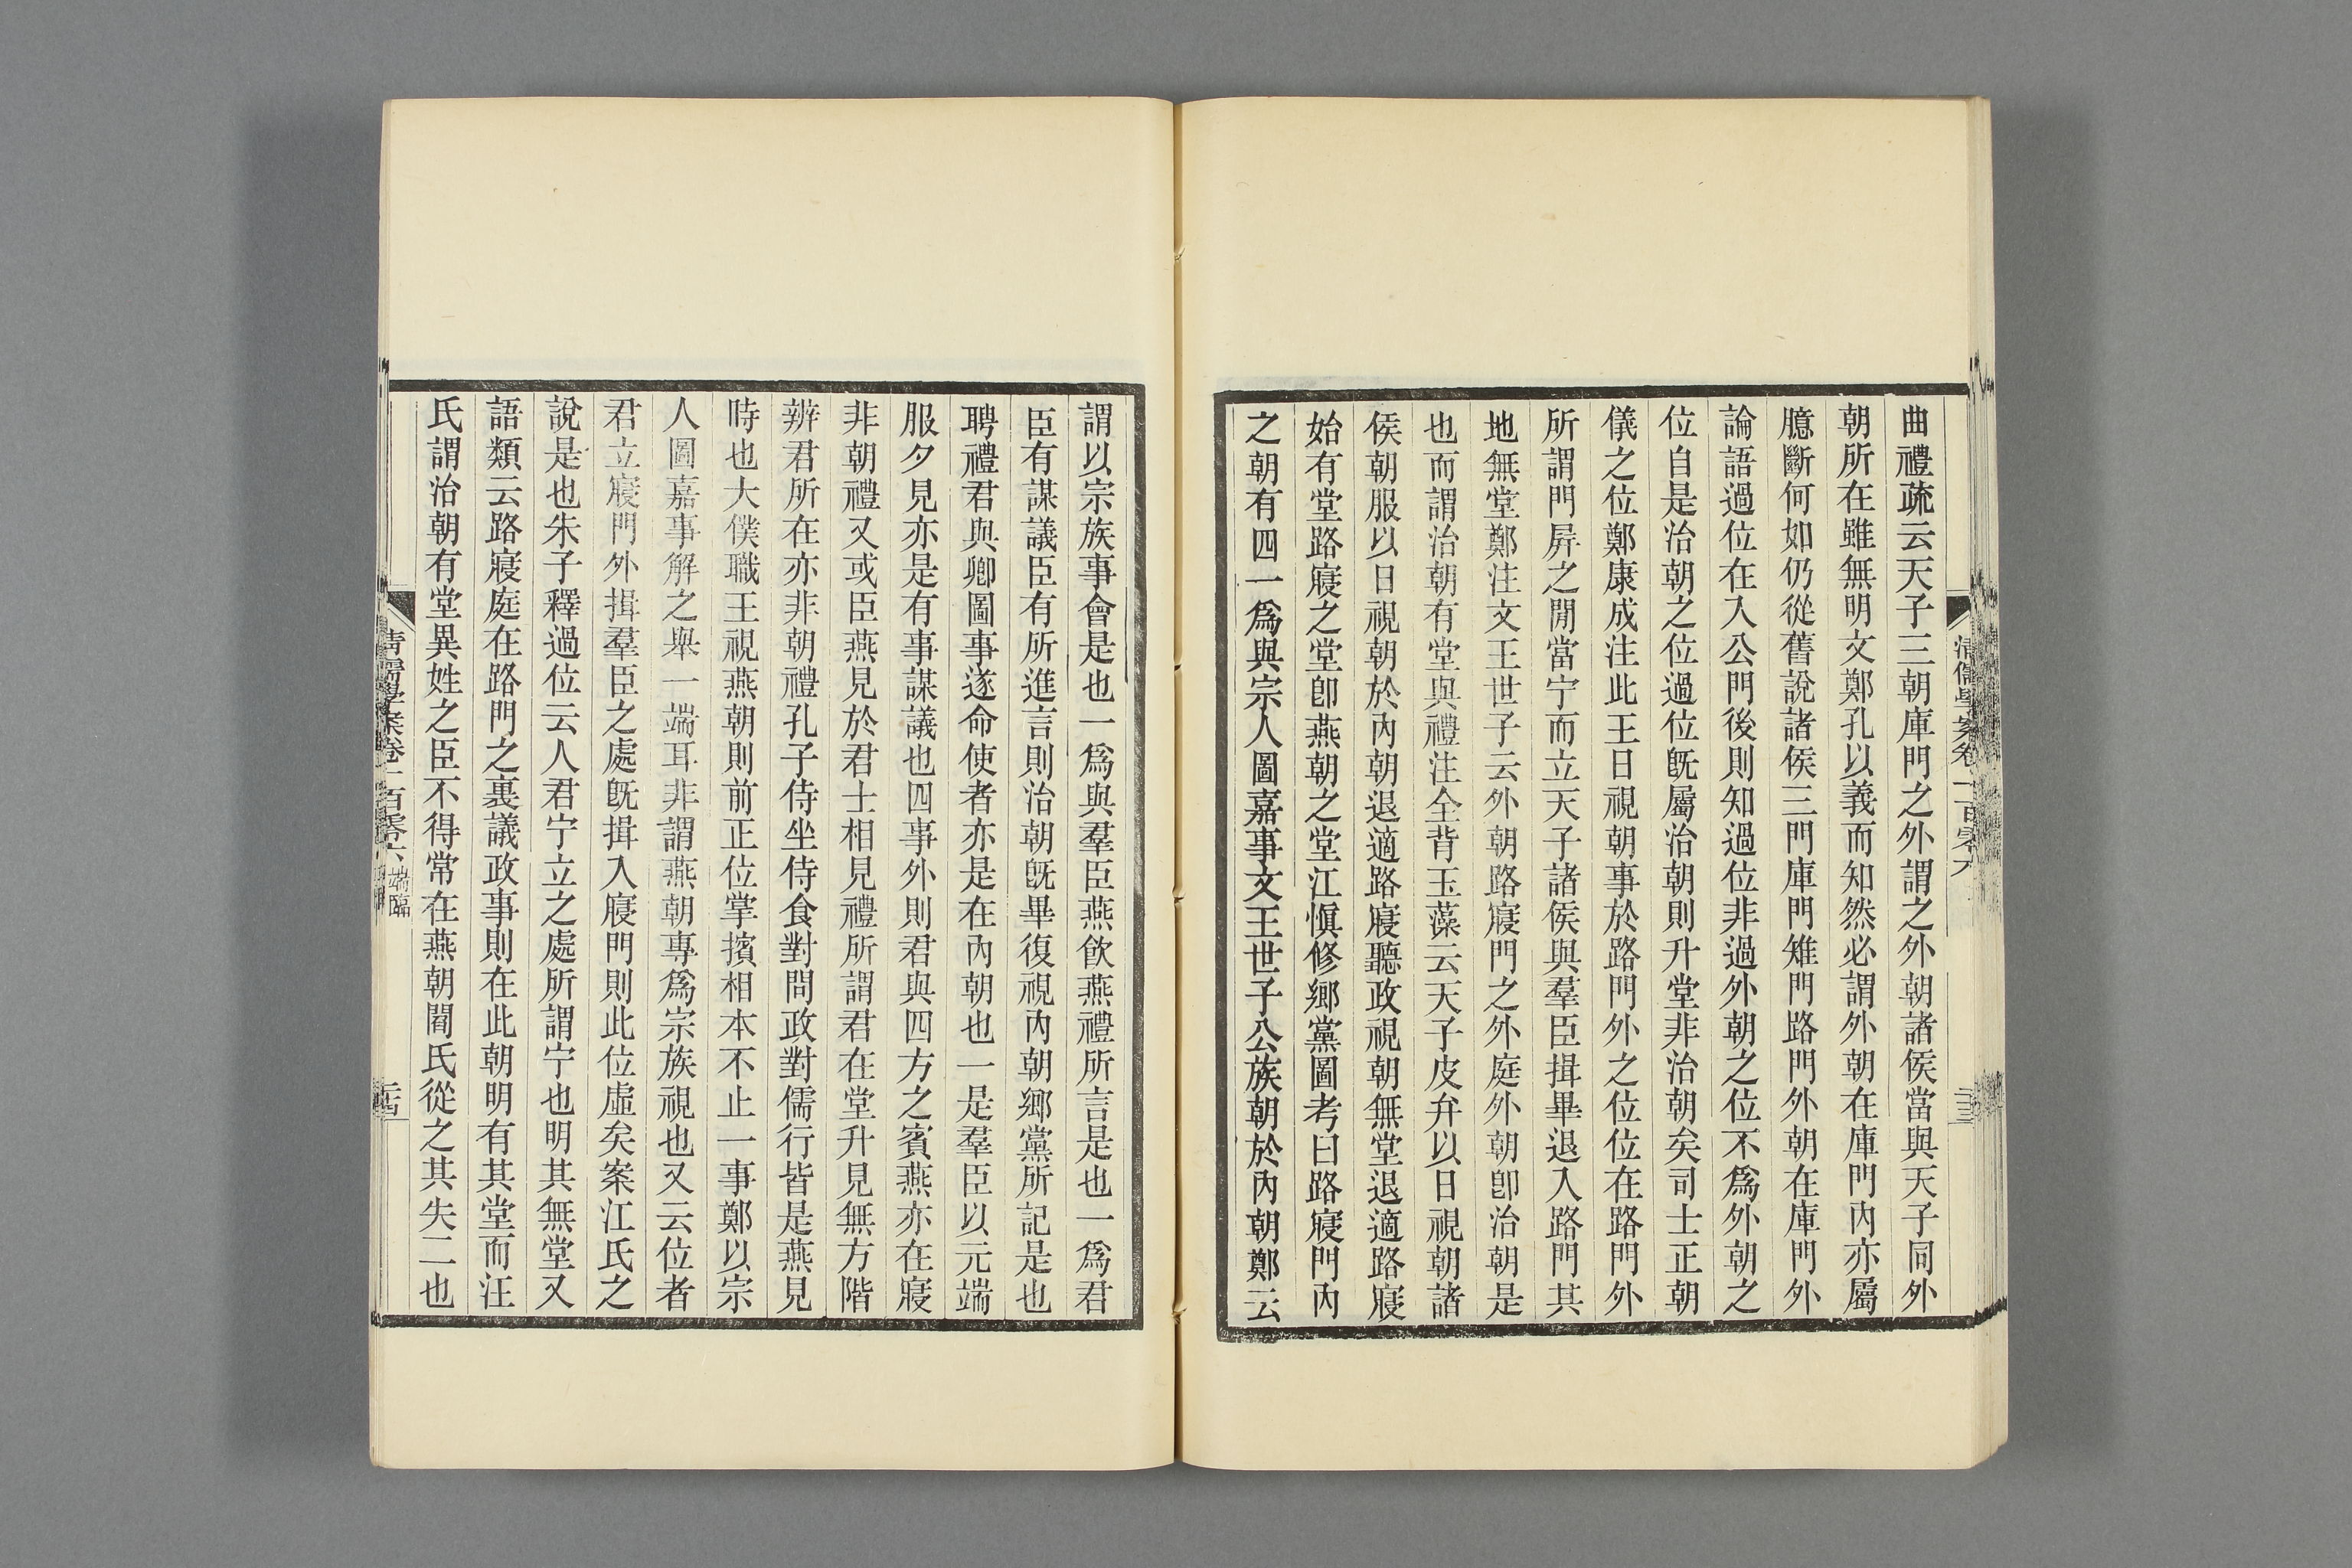 曲禮疏云天子三朝庫門之外謂之外朝諸侯當與天子同外
朝所在雖無明文鄭孔以義而知然必謂外朝在庫門內亦屬
臆斷何如仍從舊說諸侯三門庫門雉門路門外朝在庫門外
論語過位在入公門後則知過位非過外朝之位不爲外朝之
位自是治朝之位過位旣屬治朝則升堂非治朝矣司士正朝
儀之位鄭康成注此王日視朝事於路門外之位位在路門外
所謂門屛之閒當宁而立天子諸侯與羣臣揖畢退入路門其
地無堂鄭注文王世子云外朝路寢門之外庭外朝卽治朝是
也而謂治朝有堂與禮注全背玉藻云天子皮弁以日視朝諸
侯朝服以日視朝於內朝退適路寢聽政視朝無堂退適路寢
始有堂路寢之堂卽燕朝之堂江愼修鄉黨圖考曰路寢門內
之朝有四一爲與宗人圖嘉事文王世子公族朝於內朝鄭云
清儒學案卷一百零六
三三
謂以宗族事會是也一爲與羣臣燕飮燕禮所言是也一爲君
臣有謀議臣有所進言則治朝旣畢復視內朝鄉黨所記是也
聘禮君與卿圖事遂命使者亦是在內朝也一是羣臣以元端
服夕見亦是有事謀議也四事外則君與四方之賓燕亦在寢
非朝禮又或臣燕見於君士相見禮所謂君在堂升見無方階
辨君所在亦非朝禮孔子侍坐侍食對問政對儒行皆是燕見
時也大僕職王視燕朝則前正位掌擯相本不止一事鄭以宗
人圖嘉事解之舉一端耳非謂燕朝專爲宗族視也又云位者
君立寢門外揖羣臣之處旣揖入寢門則此位虛矣案江氏之
說是也朱子釋過位云人君宁立之處所謂宁也明其無堂又
語類云路寢庭在路門之裏議政事則在此朝明有其堂而汪
氏謂治朝有堂異姓之臣不得常在燕朝閻氏從之其失二也
清儒學案卷一百零六 端臨
三四